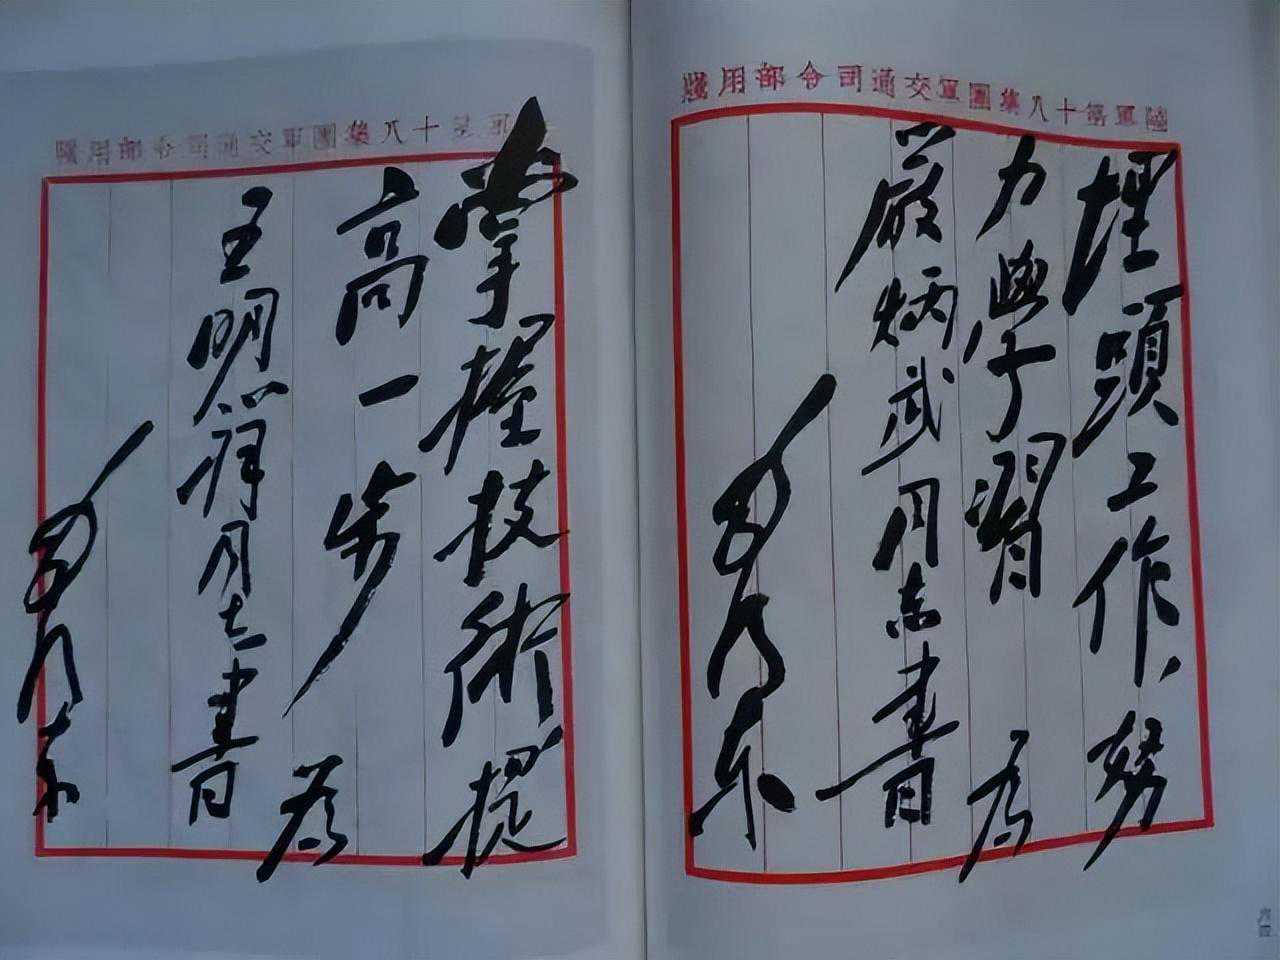 陸軍第十八集團軍交通司令部用牋
埋頭工作，努
力學習 為
嚴炳武同志書
毛澤东
十八集團軍交通司令部用牋
掌握技術提
高一步 為
王明祥同志書
毛澤东